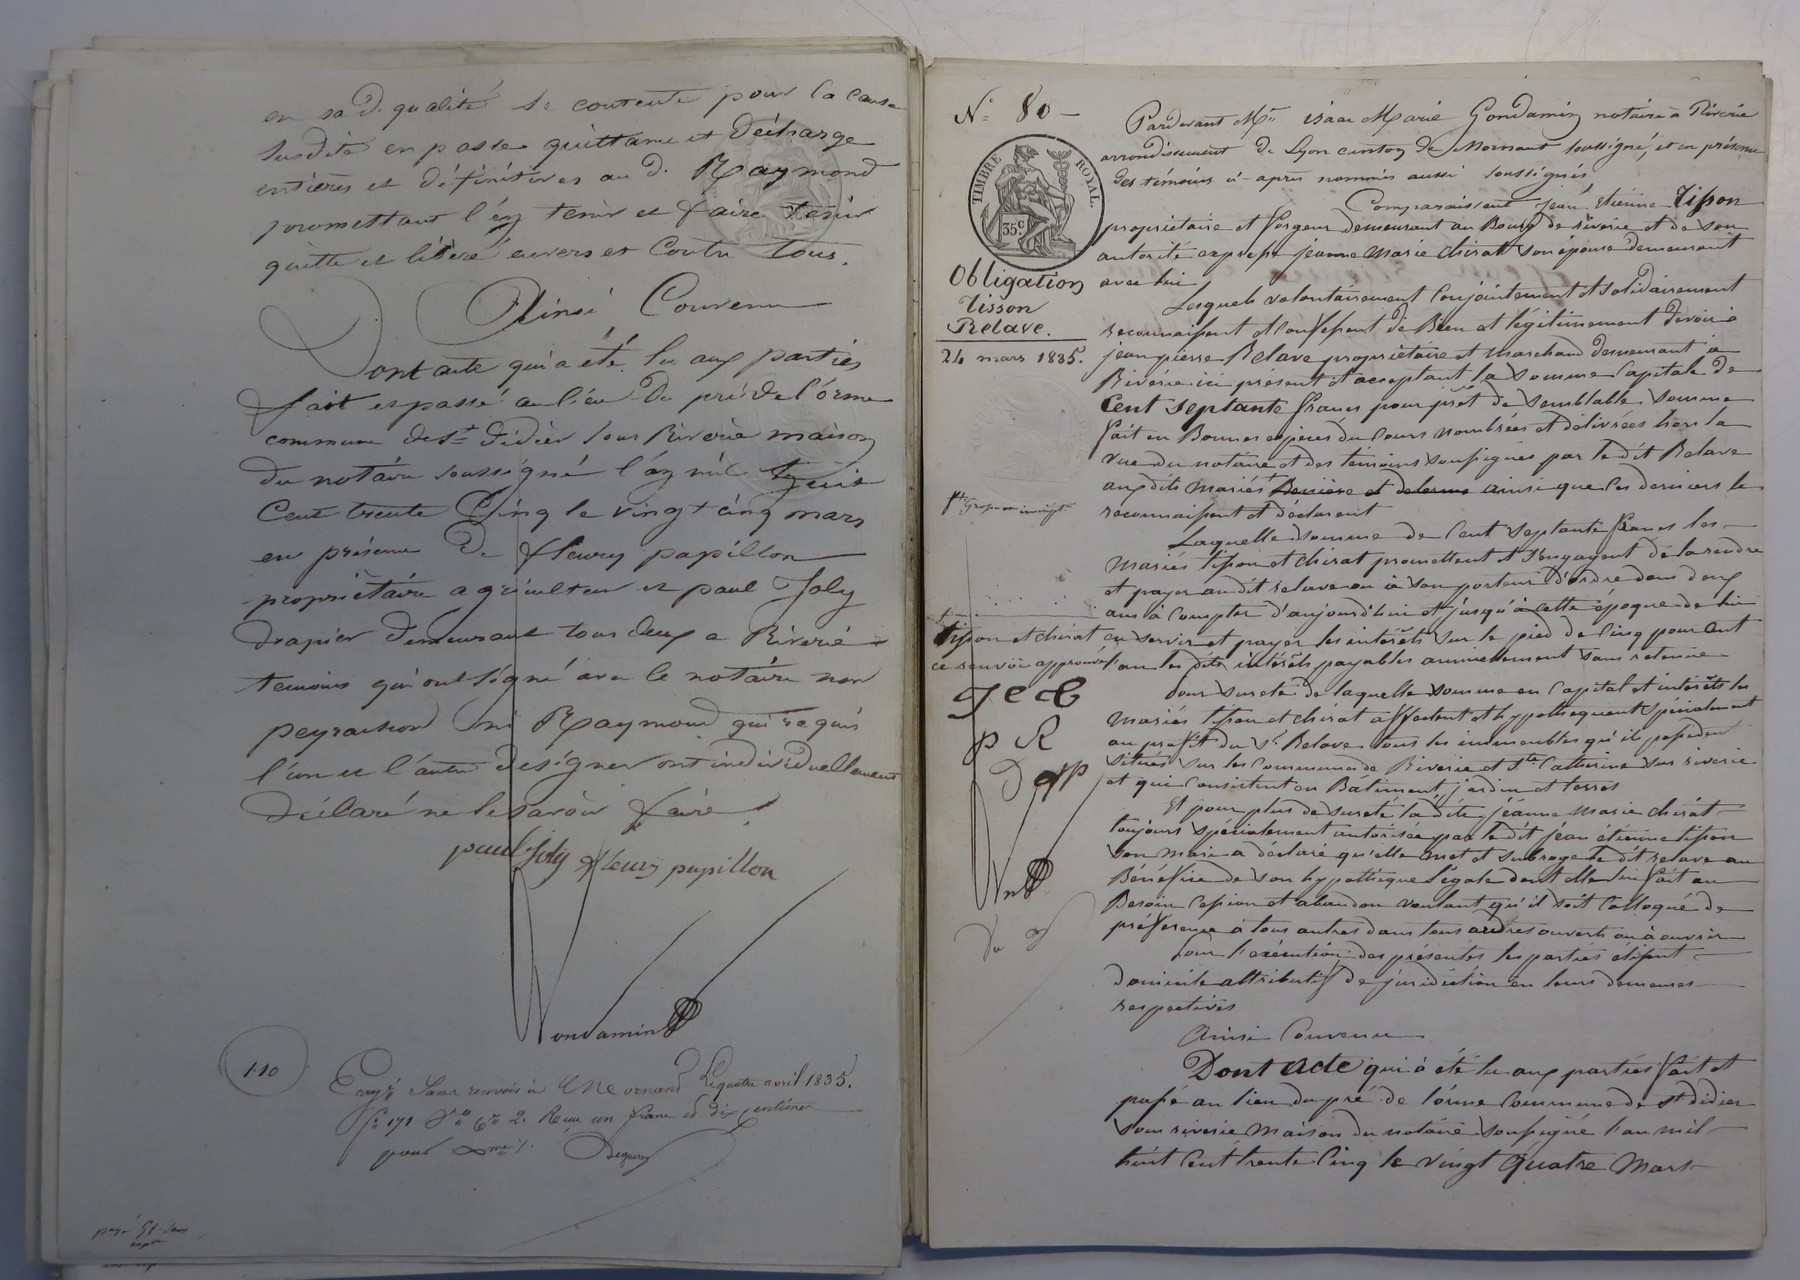 en sa d. qualité se contente pour la cause
susdite en passe quittance et décharge
entières et définitives au d. Raymond
promettant l'en tenir et faire tenir
quitte et libéré envers et contre tous.
Ainsi Convenu
Dont acte qui a été lu aux parties
fait et passé au lieu du pré de l'orme
commune de St didier sous Riverie maison
du notaire soussigné l'an mil huit
Cent trente Cinq le vingt cinq mars
en présence de fleury papillon
propriétaire agriculteur et paul Joly
drapier demeurant tous deux a Riverie
temoins qui ont signé avec le notaire non
peyrachon ni Raymond qui requis
l'un et l'autre de signer ont individuellement
déclaré ne le savoir faire.
paul Joly fleury papillon
Gondamin
1-10
Enregé sans renvois à Mornant Le quatre avril 1835.
fo 171 Vo Ce 2. Reçu un franc et dix centimes
pour Dme
No 80 -
TIMBRE ROYAL.
35 c.
Obligation
Tisson
Relave.
24 mars 1835.
Pardevant Me isaac Marie Gondamin notaire à Riverie
arrondissement de Lyon canton de Mornant soussigné, et en présence
des témoins ci-après nommés aussi soussignés
Comparaissent jean étienne Tisson
propriétaire et forgeur demeurant au Bourg de riverie et de son
autorité expresse jeanne Marie chirat son épouse demeurant
avec lui
Lesquels volontairement Conjointement et solidairement
reconnaissent et confessent de Bien et légitimement devoir à
jean pierre Relave propriétaire et marchand demeurant à
Riverie ici présent et acceptant la somme Capitale de
Cent septante francs pour prêt de semblable somme
fait en Bonnes espèces du Cours nombrées et délivrées hors la
vue du notaire et des témoins soussignés par le dit Relave
aux dits mariés ainsi que les derniers le
reconnaissent et déclarent
Laquelle somme de Cent septante francs les
mariés tisson et chirat promettent et s'engagent de la rendre
et payer au dit relave ou à son porteur d'ordre dans deux
ans à compter d'aujourd'hui et jusqu'à cette époque de lui
tisson et chirat
ce renvoi approuvé
en servir et payer les intérêts sur le pied de Cinq pour Cent
l'an les dits intérêts payables annuellement sans retenue
Pour sureté de laquelle somme en Capital et intérêts les
mariés tisson et chirat affectent et hypothèquent spécialement
au profit du Sr. Relave tous les immeubles qu'ils possèdent
situés sur les Communes de Riverie et Ste Catherine sur riverie
et qui Consistent en Bâtiment, jardin et terres
Et pour plus de sureté la dite jeanne marie chirat
toujours spécialement autorisée par le dit jean étienne tisson
son mari a déclaré qu'elle met et subroge le dit relave au
Bénéfice de son hypothèque légale dont elle lui fait au
Besoin Cession et abandon voulant qu'il soit Colloqué de
préférence à tous autres dans tous ordres ouverts ou à ouvrir
Pour l'exécution des présentes les parties élisent
domicile attributif de juridiction en leurs demeures
respectives
Ainsi Convenu
Dont acte qui à été lu aux parties fait et
passé au lieu du pré de l'orme Commune de st didier
sous riverie maison du notaire soussigné l'an mil
huit Cent trente Cinq le vingt quatre Mars